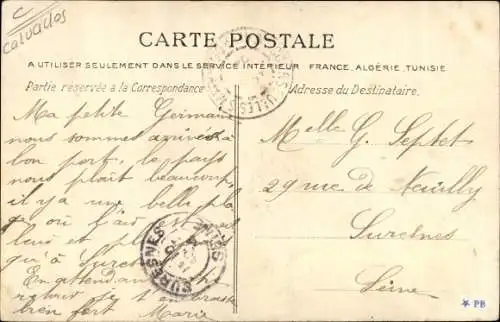 C
Calvados
CARTE POSTALE
A UTILISER SEULEMENT DANS LE SERVICE INTÉRIEUR FRANCE, ALGÉRIE, TUNISIE
Partie réservée à la Correspondance
Adresse du Destinataire.
Ma petite Germaine
nous sommes arrivés à
bon port, le pays
nous plait beaucoup
il y a une belle plage
où l'air est
leur et plus
à Suresnes
En attendant
retour je t'embrasse
bien fort Marie
Melle G. Septet
29 rue de Neuilly
Suresnes
Seine
SURESNES
SEINE
* PB